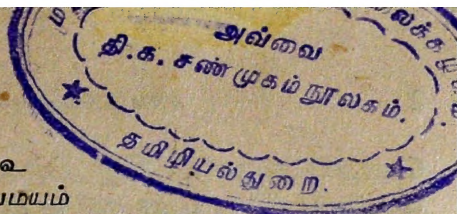 அவ்வை
தி.க. சண்முகம் நூலகம்.
தமிழியல்துறை.